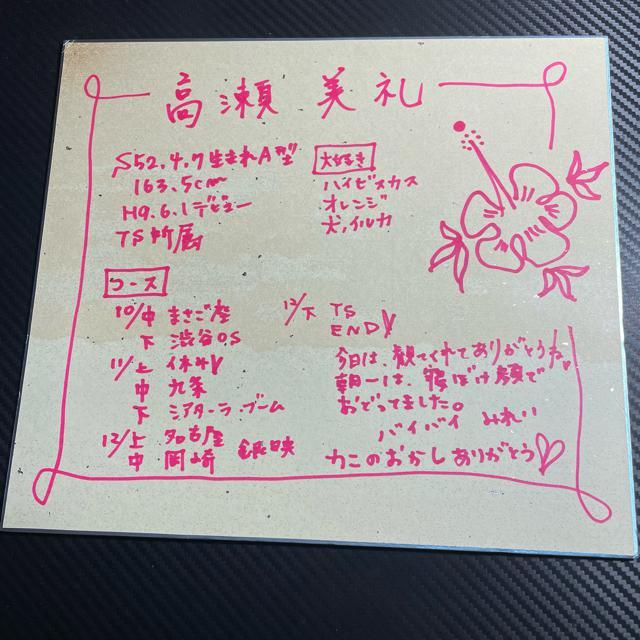 高瀬 美礼
S52.4.7生まれA型
163.5cm
H9.6.1デビュー
TS所属
大好き
ハイビスカス
オレンジ
犬、イルカ
コース
10/中 まさご座
下 渋谷OS
11/上 休み
中 九条
下 シアター・ラ・ブーム
12/上 名古屋 銀映
中 岡崎
12/下 TS
END
今日は、観てくれてありがとうね
朝一は、寝ぼけ顔で
おどってました。
バイバイ みれい
カニのおかしありがとう♡